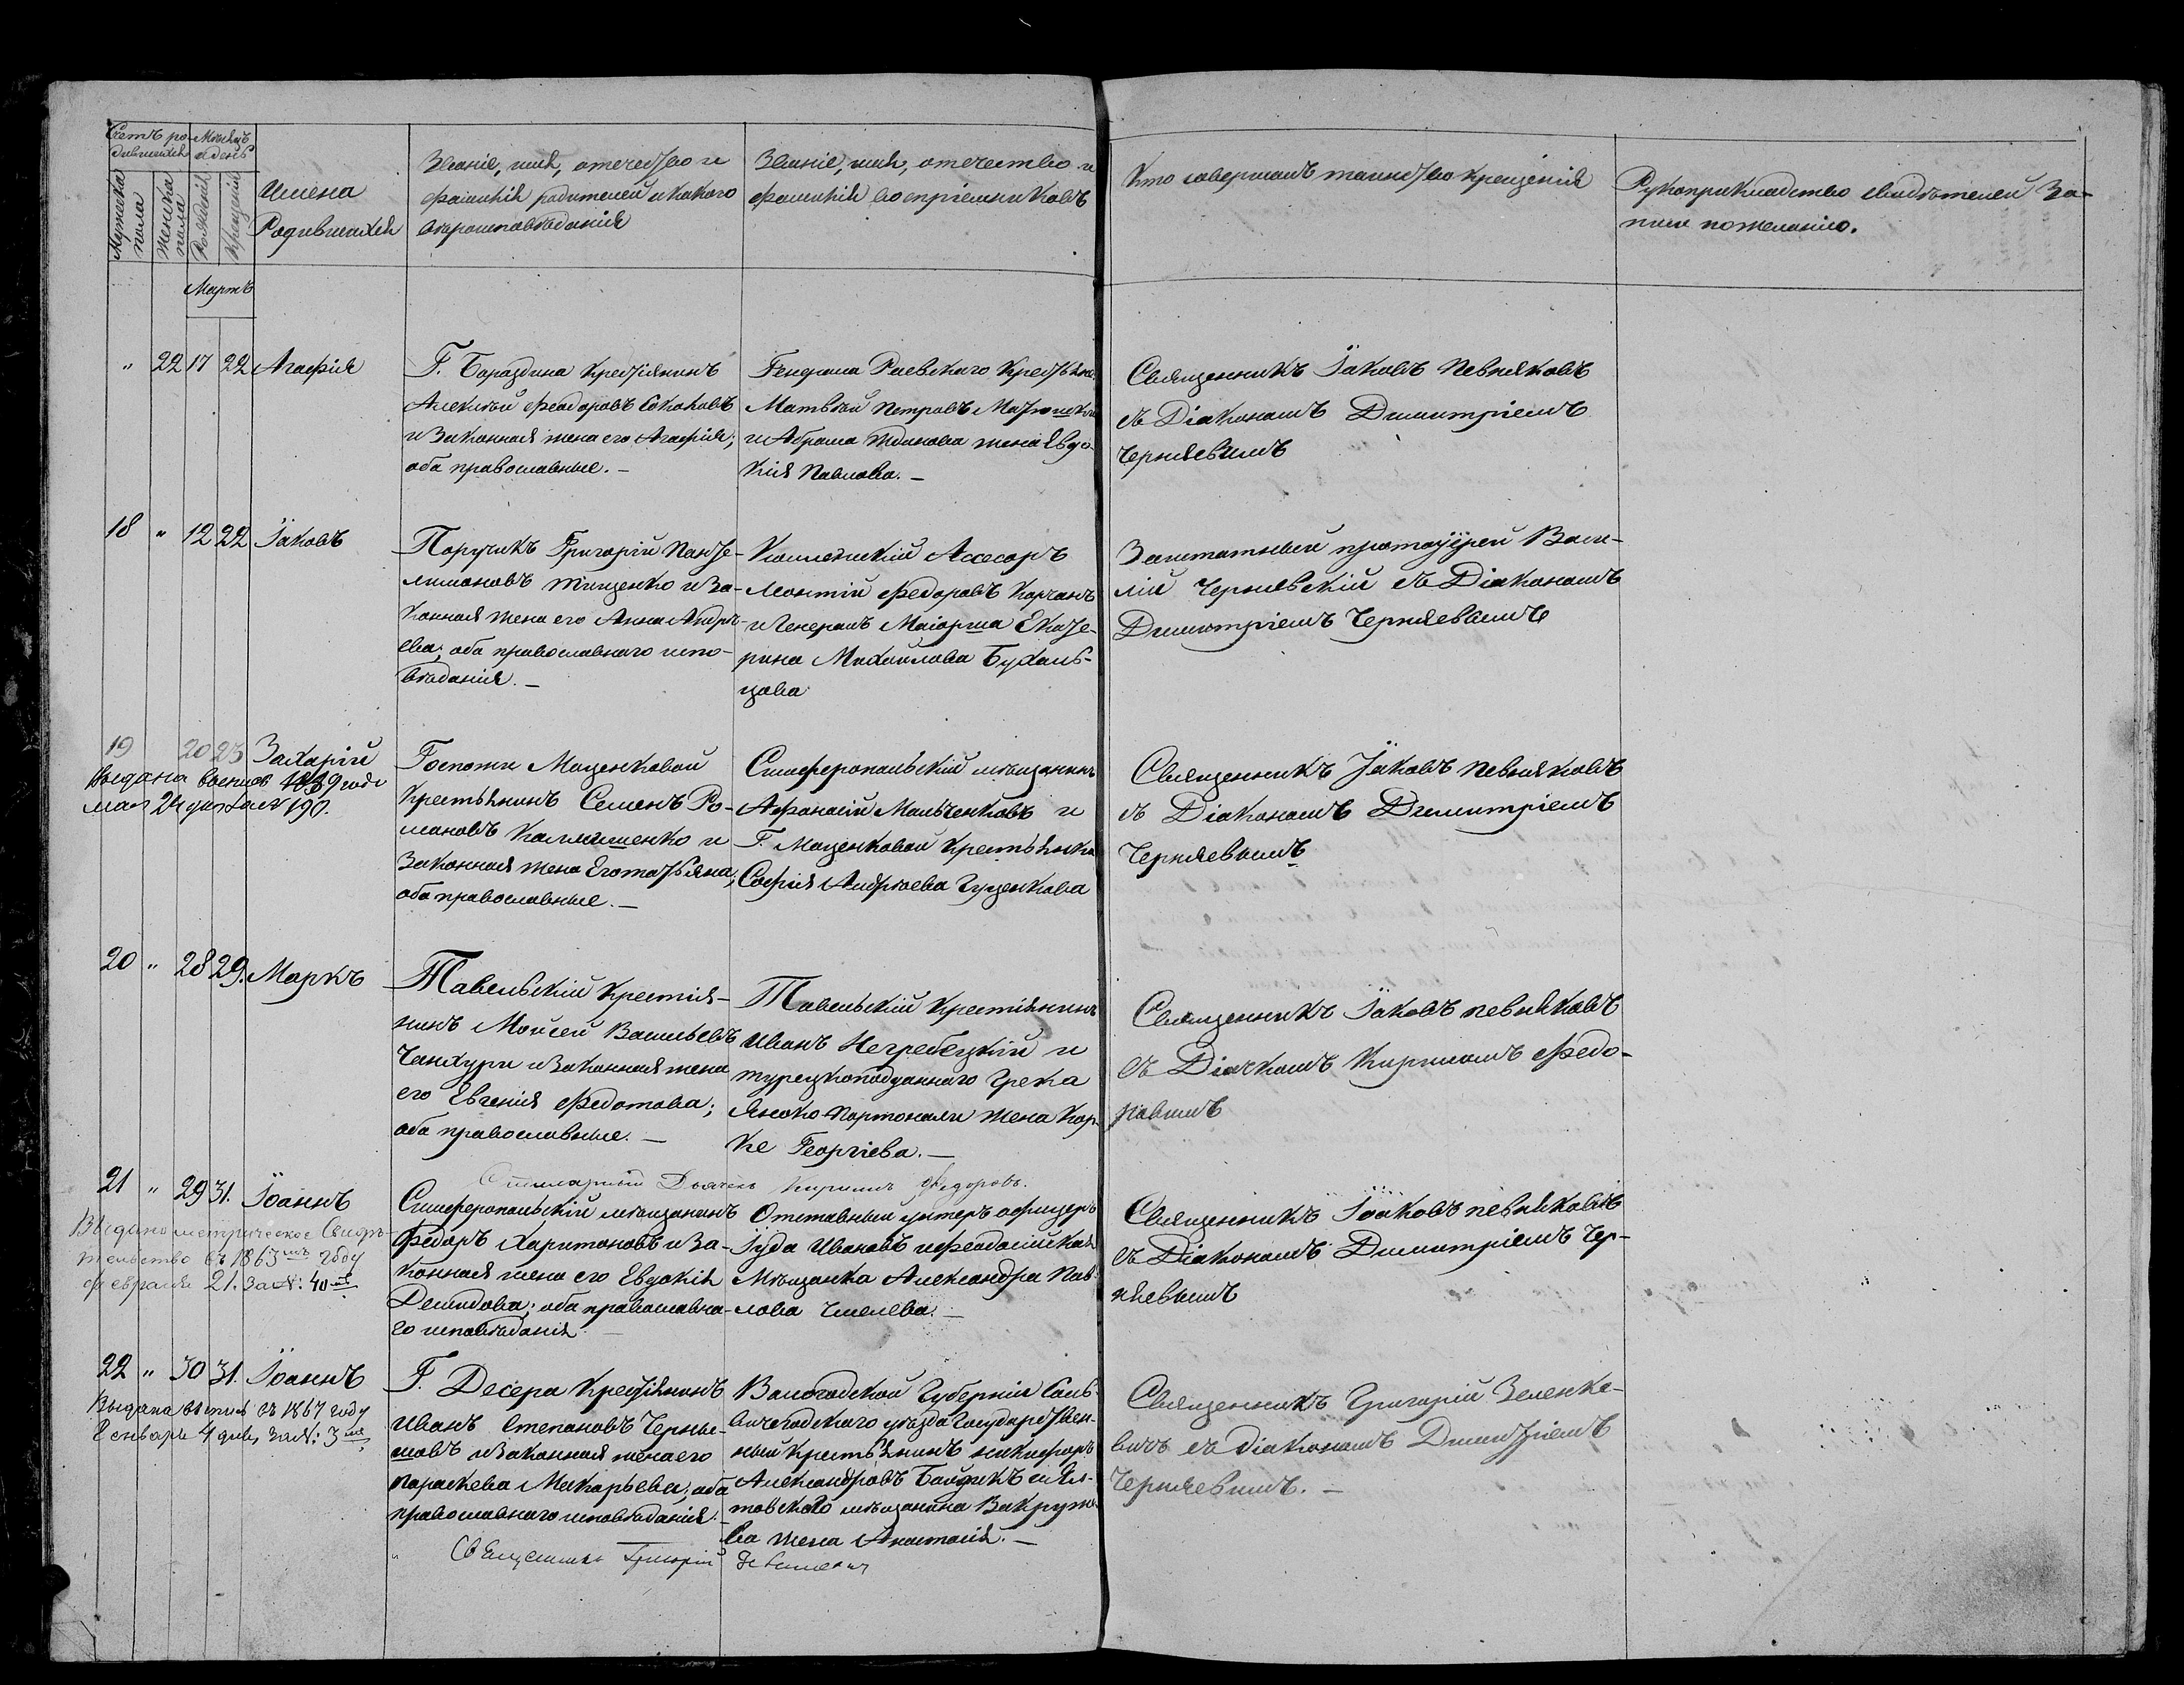 Счетъ ро-
дившихся
Мѣсяцъ
и день
Мужеска
пола
Женска
пола
Рожденія
Крещенія
Имена
Родившихся
Званіе, имя, отчество и
фамилія родителей и какого
вѣроисповѣданія
Званіе, имя, отчество и
фамилія воспріемниковъ
Кто совершалъ таинство крещенія
Рукоприкладство свидѣтелей за-
писи по желанію.
Мартъ
" 22 17 22 Агафія
Г. Бороздина крестіянинъ
Алексѣй Феодоровъ Соколовъ
и Законная жена его Агафія;
оба православные. —
Генерала Раевскаго крестьян.
Матвѣй Петровъ
и Абрама Жданова жена Евдо-
кія Павлова. —
Священникъ Іаковъ Певняковъ
съ Діакономъ Димитріемъ
Черняевымъ
18 " 12 22 Іаковъ
Поручикъ Григорій Панте-
лимоновъ Тищенко и за-
конная жена его Анна Андре-
ева; оба православнаго испо-
вѣданія. —
Коллежскій Ассесоръ
Леонтій Федоровъ Корчанъ
и Генералъ Маіорша Екате-
рина Михайлова Бухаль-
цова
Заштатный протоіерей Васи-
лій Чернявскій съ Діакономъ
Димитріемъ Черняевымъ
19 20 23 Захарій
Выдана выпись 1889 году
мая 24 дня за № 190.
Госпожи Маценковой
крестьянинъ Семенъ Ро-
мановъ Каллашенко и
Законная жена Его Татьяна;
оба православные. —
Симферопольскій мѣщанинъ
Афонасій Мальченковъ и
Г. Маценковой крестьянка
Софія Андреева Гуценкова
Священникъ Іаковъ Певняковъ
съ Діакономъ Димитріемъ
Черняевымъ
20 " 28 29. Маркъ
Тавельскій крестія-
нинъ Мойсей Васильевъ
Чанхури и Законная жена
его Евгенія Федотова;
оба православные. —
Тавельскій крестіянинъ
Иванъ Негребецкій и
турецкоподданнаго Грека
Яноко Портонали жена Кор-
ке Георгіева. —
Священникъ Іаковъ певняковъ
съ Діачкомъ Кириломъ Федо-
ровымъ
Дьячекъ Кирилъ Федоровъ.
21 " 29 31. Іоаннъ
Выдано метрическое Свидѣ-
тельство въ 1863мъ году
февраля 21. за №: 40мъ
Симферопольскій мѣщанинъ
Федоръ Харитоновъ и За-
конная жена его Евдокія
Демидова; оба православна-
го исповѣданія. —
Отставный унтеръ офицеръ
Іуда Ивановъ и Феодосійская
Мѣщанка Александра Пав-
лова Чмелева. —
Священникъ Іоаковъ певняковъ
съ Діакономъ Димитріемъ Чер-
няевымъ
22 " 30 31. Іоаннъ
Выдана выпись въ 1867 году
Генваря 4 дня, за №: 3мъ
Г. Десера крестіянинъ
Иванъ Степановъ Черны-
шовъ и Законная жена его
Параскева Макарьева; оба
православнаго исповѣданія. —
Вологодской Губерніи Соль-
вычегодскаго уѣзда Государствен-
ный крестьянинъ никифоръ
Александровъ Байдикъ и Ял-
товскаго мѣщанина Вакруше-
ва жена Анастасія. —
Священникъ Григорій Зеленке-
вичъ съ діакономъ Димитріемъ
Черняевымъ. —
Священникъ Григорій